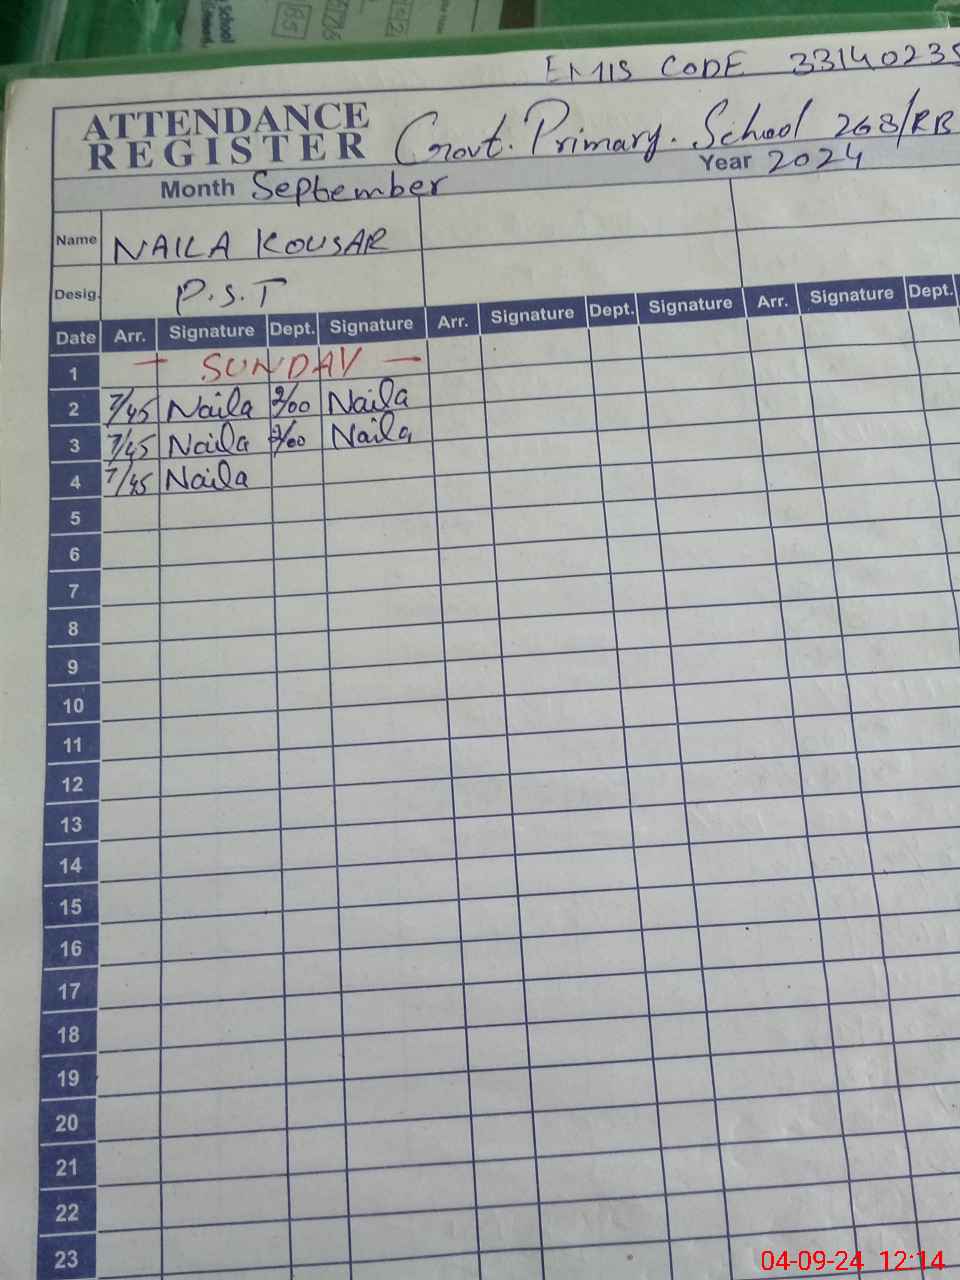 EMIS CODE 33140235
ATTENDANCE
REGISTER
Govt. Primary. School 268/RB
Month September
Year 2024
Name NAILA KOUSAR
Desig. P.S.T
Date Arr. Signature Dept. Signature Arr. Signature Dept. Signature Arr. Signature Dept.
1 — SUNDAY —
2 7/45 Naila 2/00 Naila
3 7/45 Naila 2/00 Naila
4 7/45 Naila
5
6
7
8
9
10
11
12
13
14
15
16
17
18
19
20
21
22
23
04-09-24 12:14